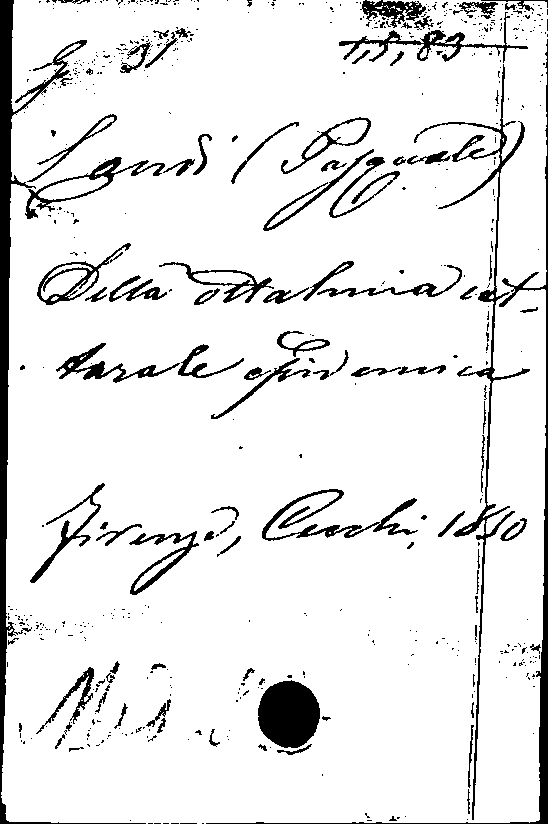 G. 31 1,5,83
Landi (Pasquale)
Della ottalmia cat-
tarale epidemica
Firenze, Cecchi, 1850
Med